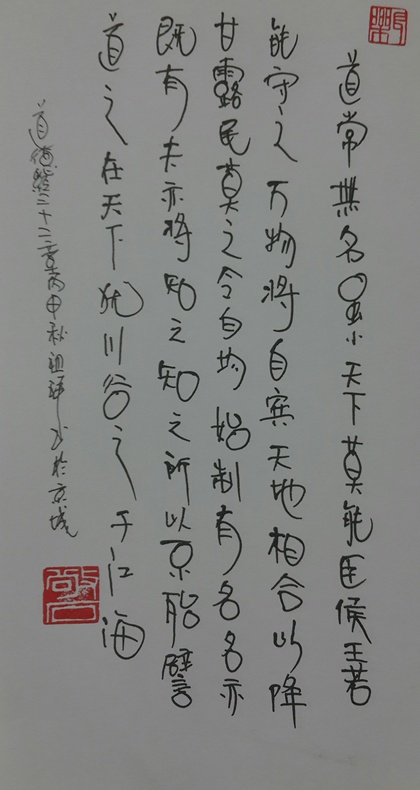 道常無名虽小天下莫能臣侯王若
能守之万物将自宾天地相合以降
甘露民莫之令自均始制有名名亦
既有夫亦将知之知之所以不殆譬
道之在天下犹川谷之于江海
道德經三十二章丙申秋祖书於京城